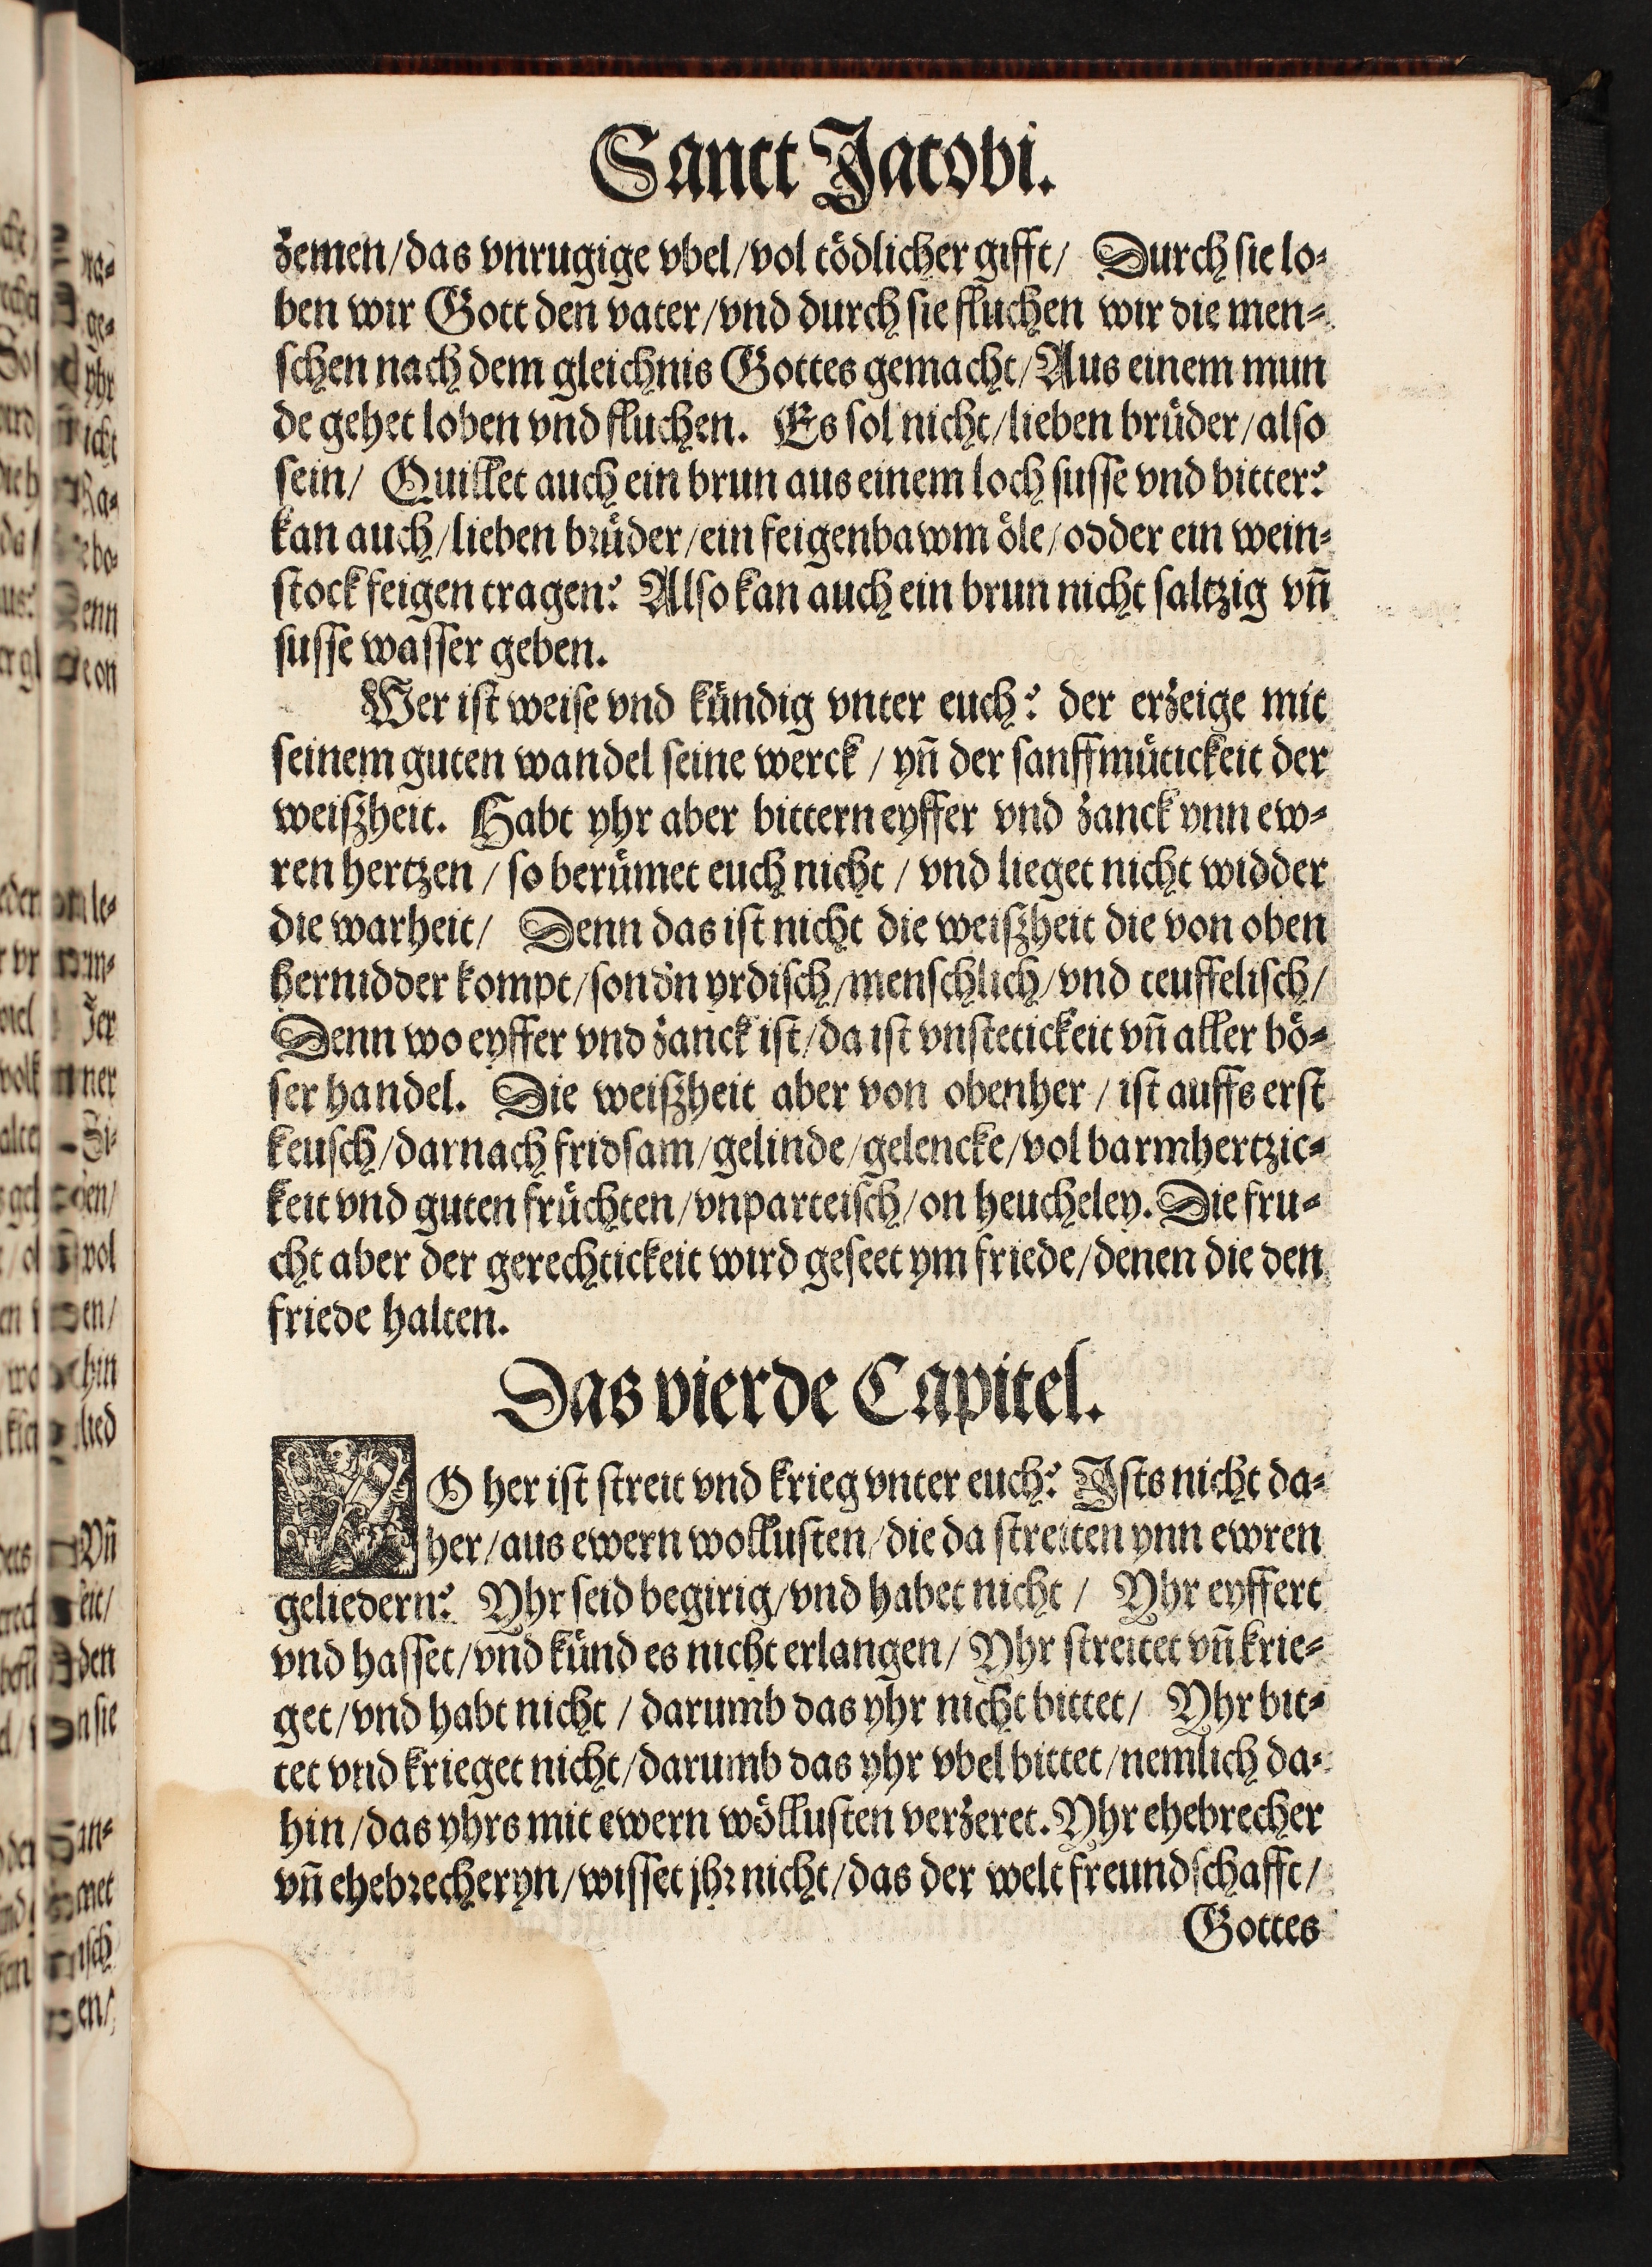 Sanct Jacobi.
zemen/das vnrugige vbel/vol tödlicher gifft/ Durch sie lo⸗
ben wir Gott den vater/vnd durch sie fluchen wir die men⸗
schen nach dem gleichnis Gottes gemacht/Aus einem mun
de gehet loben vnd fluchen. Es sol nicht/lieben brůder/also
sein/ Quillet auch ein brun aus einem loch susse vnd bitter?
kan auch/lieben brůder/ein feigenbawm öle/odder ein wein⸗
stock feigen tragen? Also kan auch ein brun nicht saltzig vñ
susse wasser geben.
Wer ist weise vnd kündig vnter euch? der erzeige mit
seinem guten wandel seine werck/yñ der sanffmütickeit der
weißheit. Habt yhr aber bittern eyffer vnd zanck ynn ew⸗
ren hertzen/so berümet euch nicht/vnd lieget nicht widder
die warheit/ Denn das ist nicht die weißheit die von oben
hernidder kompt/sondn̄ yrdisch/menschlich/vnd teuffelisch/
Denn wo eyffer vnd zanck ist/da ist vnstetickeit vñ aller bö⸗
ser handel. Die weißheit aber von obenher/ist auffs erst
keusch/darnach fridsam/gelinde/gelencke/vol barmhertzic⸗
keit vnd guten früchten/vnparteisch/on heucheley. Die fru⸗
cht aber der gerechtickeit wird geseet ym friede/denen die den
friede halten.
Das vierde Capitel.
WO her ist streit vnd krieg vnter euch? Ists nicht da⸗
her/aus ewern wollusten/die da streiten ynn ewren
geliedern? Yhr seid begirig/vnd habet nicht/ Yhr eyffert
vnd hasset/vnd künd es nicht erlangen/Yhr streitet vñ krie⸗
get/vnd habt nicht/darumb das yhr nicht bittet/ Yhr bit⸗
tet vnd krieget nicht/darumb das yhr vbel bittet/nemlich da⸗
hin/das yhrs mit ewern wöllusten verzeret. Yhr ehebrecher
vñ ehebrecheryn/wisset jhr nicht/das der welt freundschafft/
Gottes